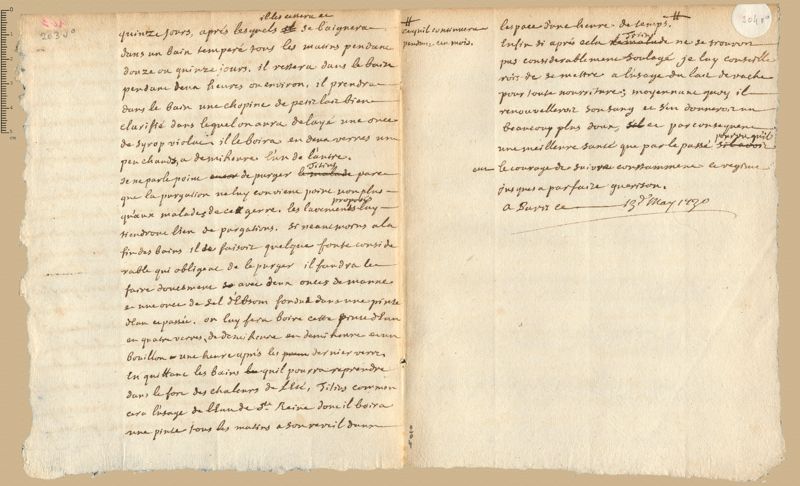 203 v°
il les cessera et
quinze jours, après lesquels il se baignera
dans un bain temperé tous les matins pendant
douze ou quinze jours. il restera dans le bain
pendant deux heures ou environ, il prendra
dans le bain une chopine de petit lait bien
clarifié dans lequel on aura delayé une once
de syrop violat il le boira en deux verres un
peu chauds, a demi heure l'un de l'autre.
Je ne parle point de purger le malade parce
Titius
que la purgation ne luy convient point non plus
qu'aux malades de ce genre. les lavements luy
proposés
tiendront lieu de purgations. Si neantmoins a la
fin des bains il se faisoit quelque fonte conside
rable qui obligeat de le purger il faudra le
faire doucement avec deux onces de manne
et une once de sel d'Ebsom fondue dans une pinte
d'Eau et passée. on luy fera boire cette pinte d'Eau
en quatre verres, de demi heure en demi heure et un
bouillon une heure après les dernier verre.
En quittant les bains qu'il pourra reprendre
dans le fort des chaleurs de l'Esté, Titius commen
cera l'usage de l'Eau de Ste Reine dont il boira
une pinte tous les matins a son reveil dans
ce qu'il continuera
pendant un mois.
204 r°
lespace d'une heure de temps.
Enfin si après cela le malade ne se trouvoit
Titius
pas considerablement soulagé je luy conseille
rois de se mettre a l'usage du lait de vache
pour toute nourriture; moyennant quoy il
renouvelleroit son sang et s'en donneroit un
beaucoup plus doux, et par consequent
une meilleure santé que par le passé s'il avoit
pourvu qu'il
eut le courage de suivre constamment ce regime
jusques a parfaite guerison.
a Paris ce 13e May 1730